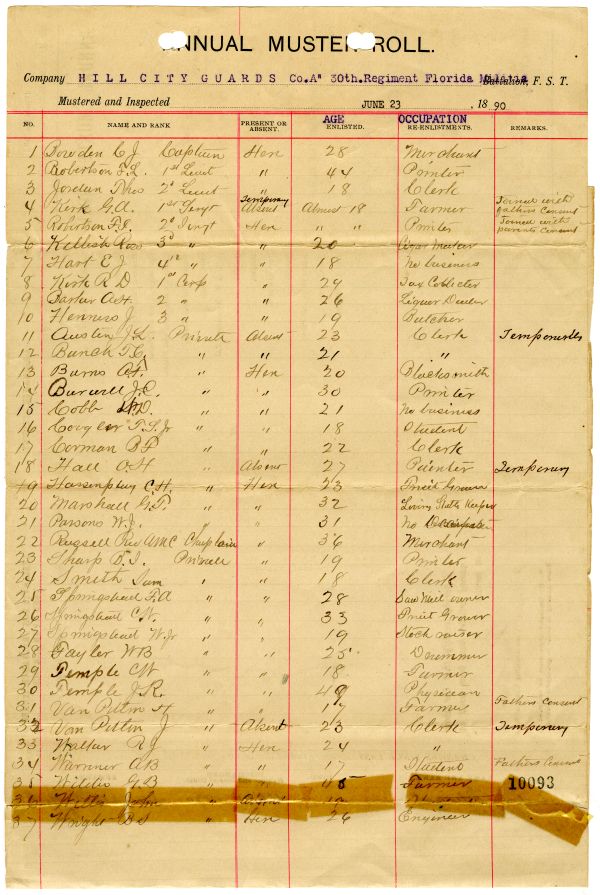 ANNUAL MUSTER ROLL.
Company HILL CITY GUARDS Co.A" 30th.Regiment Florida Militia Battalion, F. S. T.
Mustered and Inspected JUNE 23 1890
NO. NAME AND RANK PRESENT OR ABSENT. AGE ENLISTED. OCCUPATION RE-ENLISTMENTS. REMARKS.
1 Bowden C J Captain Here 28 Merchant
2 Robertson F.L. 1st Lieut " 44 Printer
3 Jordan Thos 2d Lieut " 18 Clerk
4 Kirk G.A. 1st Sergt Temporary Absent Almost 18 Farmer Joined with fathers Consent
5 Robertson F.S. 2d Sergt Here " " Printer Joined with parents Consent
6 Ross 3d " " 20 Cigar Maker
7 Hart E J 4th " " 18 No business
8 Kirk R D 1st Corp " 29 Tax Collector
9 Barker A H 2 " " 26 Liquor Dealer
10 J 3 " " 19 Butcher
11 Austin J.L. Private Absent 23 Clerk Temporarily
12 Bunch T.C. " " 21 "
13 Burns A.F. " Here 20 Blacksmith
14 Burwell J.C. " " 30 Printer
15 Cobb D. " " 21 No business
16 T.S. Jr " " 18 Student
17 Corman B P " " 22 Clerk
18 Hall O H " Absent 27 Painter Temporary
19 C.H. " Here 23 Fruit Grower
20 Marshall G.T. " " 32 Livery Stable Keeper
21 Parsons W.J. " " 31 No
22 Russell Rev AMC Chaplain " 36 Merchant
23 Sharp B.J. Private " 19 Printer
24 Smith Sam " " 18 Clerk
25 Springstead F.A " " 28 Saw Mill owner
26 Springstead C.W. " " 33 Fruit Grower
27 Springstead W. Jr " " 19 Stock raiser
28 Tayler W B " " 25 Drummer
29 Temple C W " " 18 Farmer
30 Temple J.R. " " 49 Physician
31 Van Pelten H " " Farmer Fathers Consent
32 Van Pelten J " Absent 23 Clerk Temporary
33 Walker R J " Here 24 "
34 Warnner A B " " 17 Student Fathers Consent
35 G.B " " Farmer 10093
36 John " Absent
37 Wright B S " Here 26 Engineer